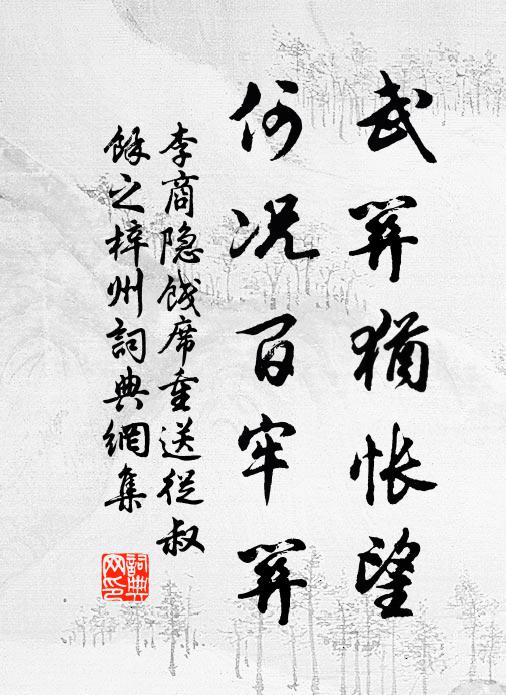 武關猶悵望
何況百牢關
李商隐餞席重送從叔
餘之梓州詞典網集
詞典
网印